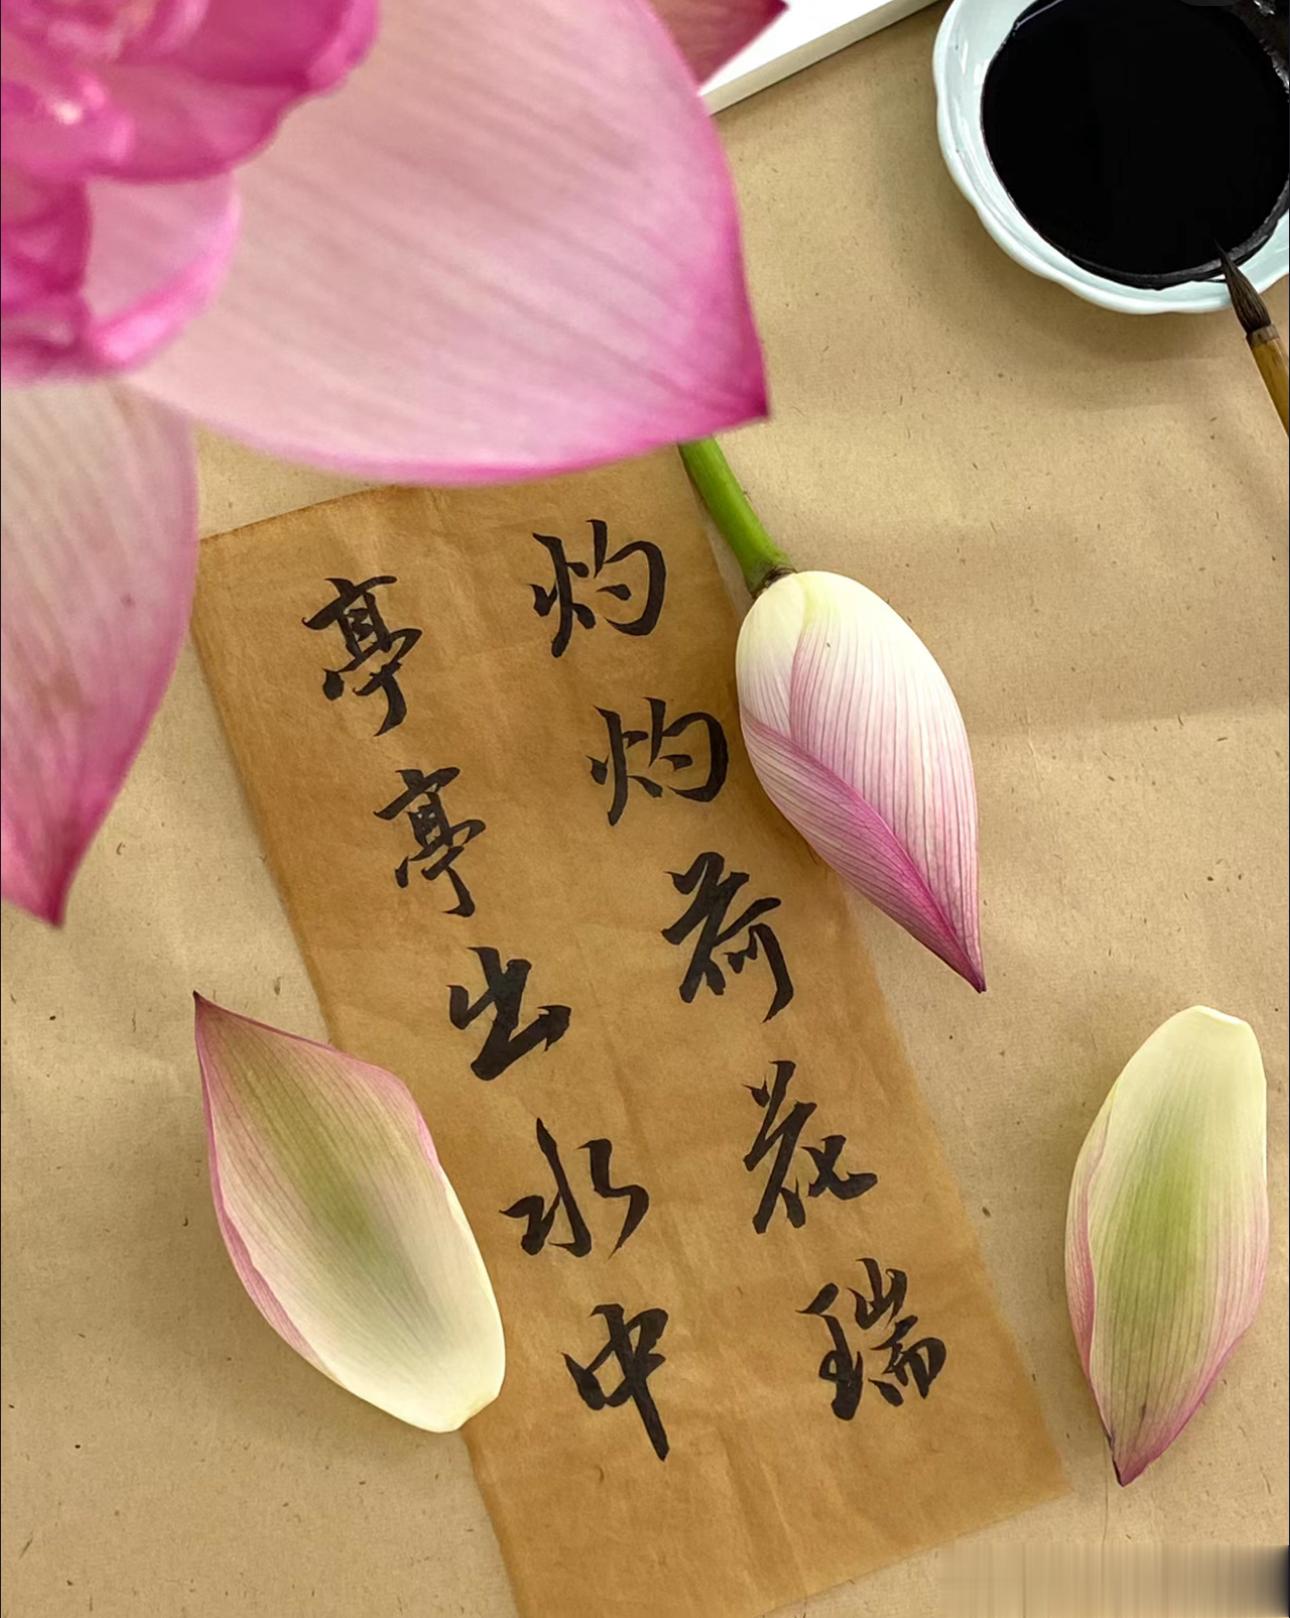 灼灼荷花瑞
亭亭出水中